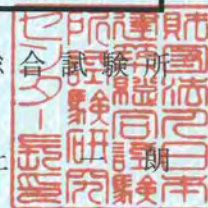 合試験所
朗
財団法人日本
建築総合試験
所試験研究
センター長